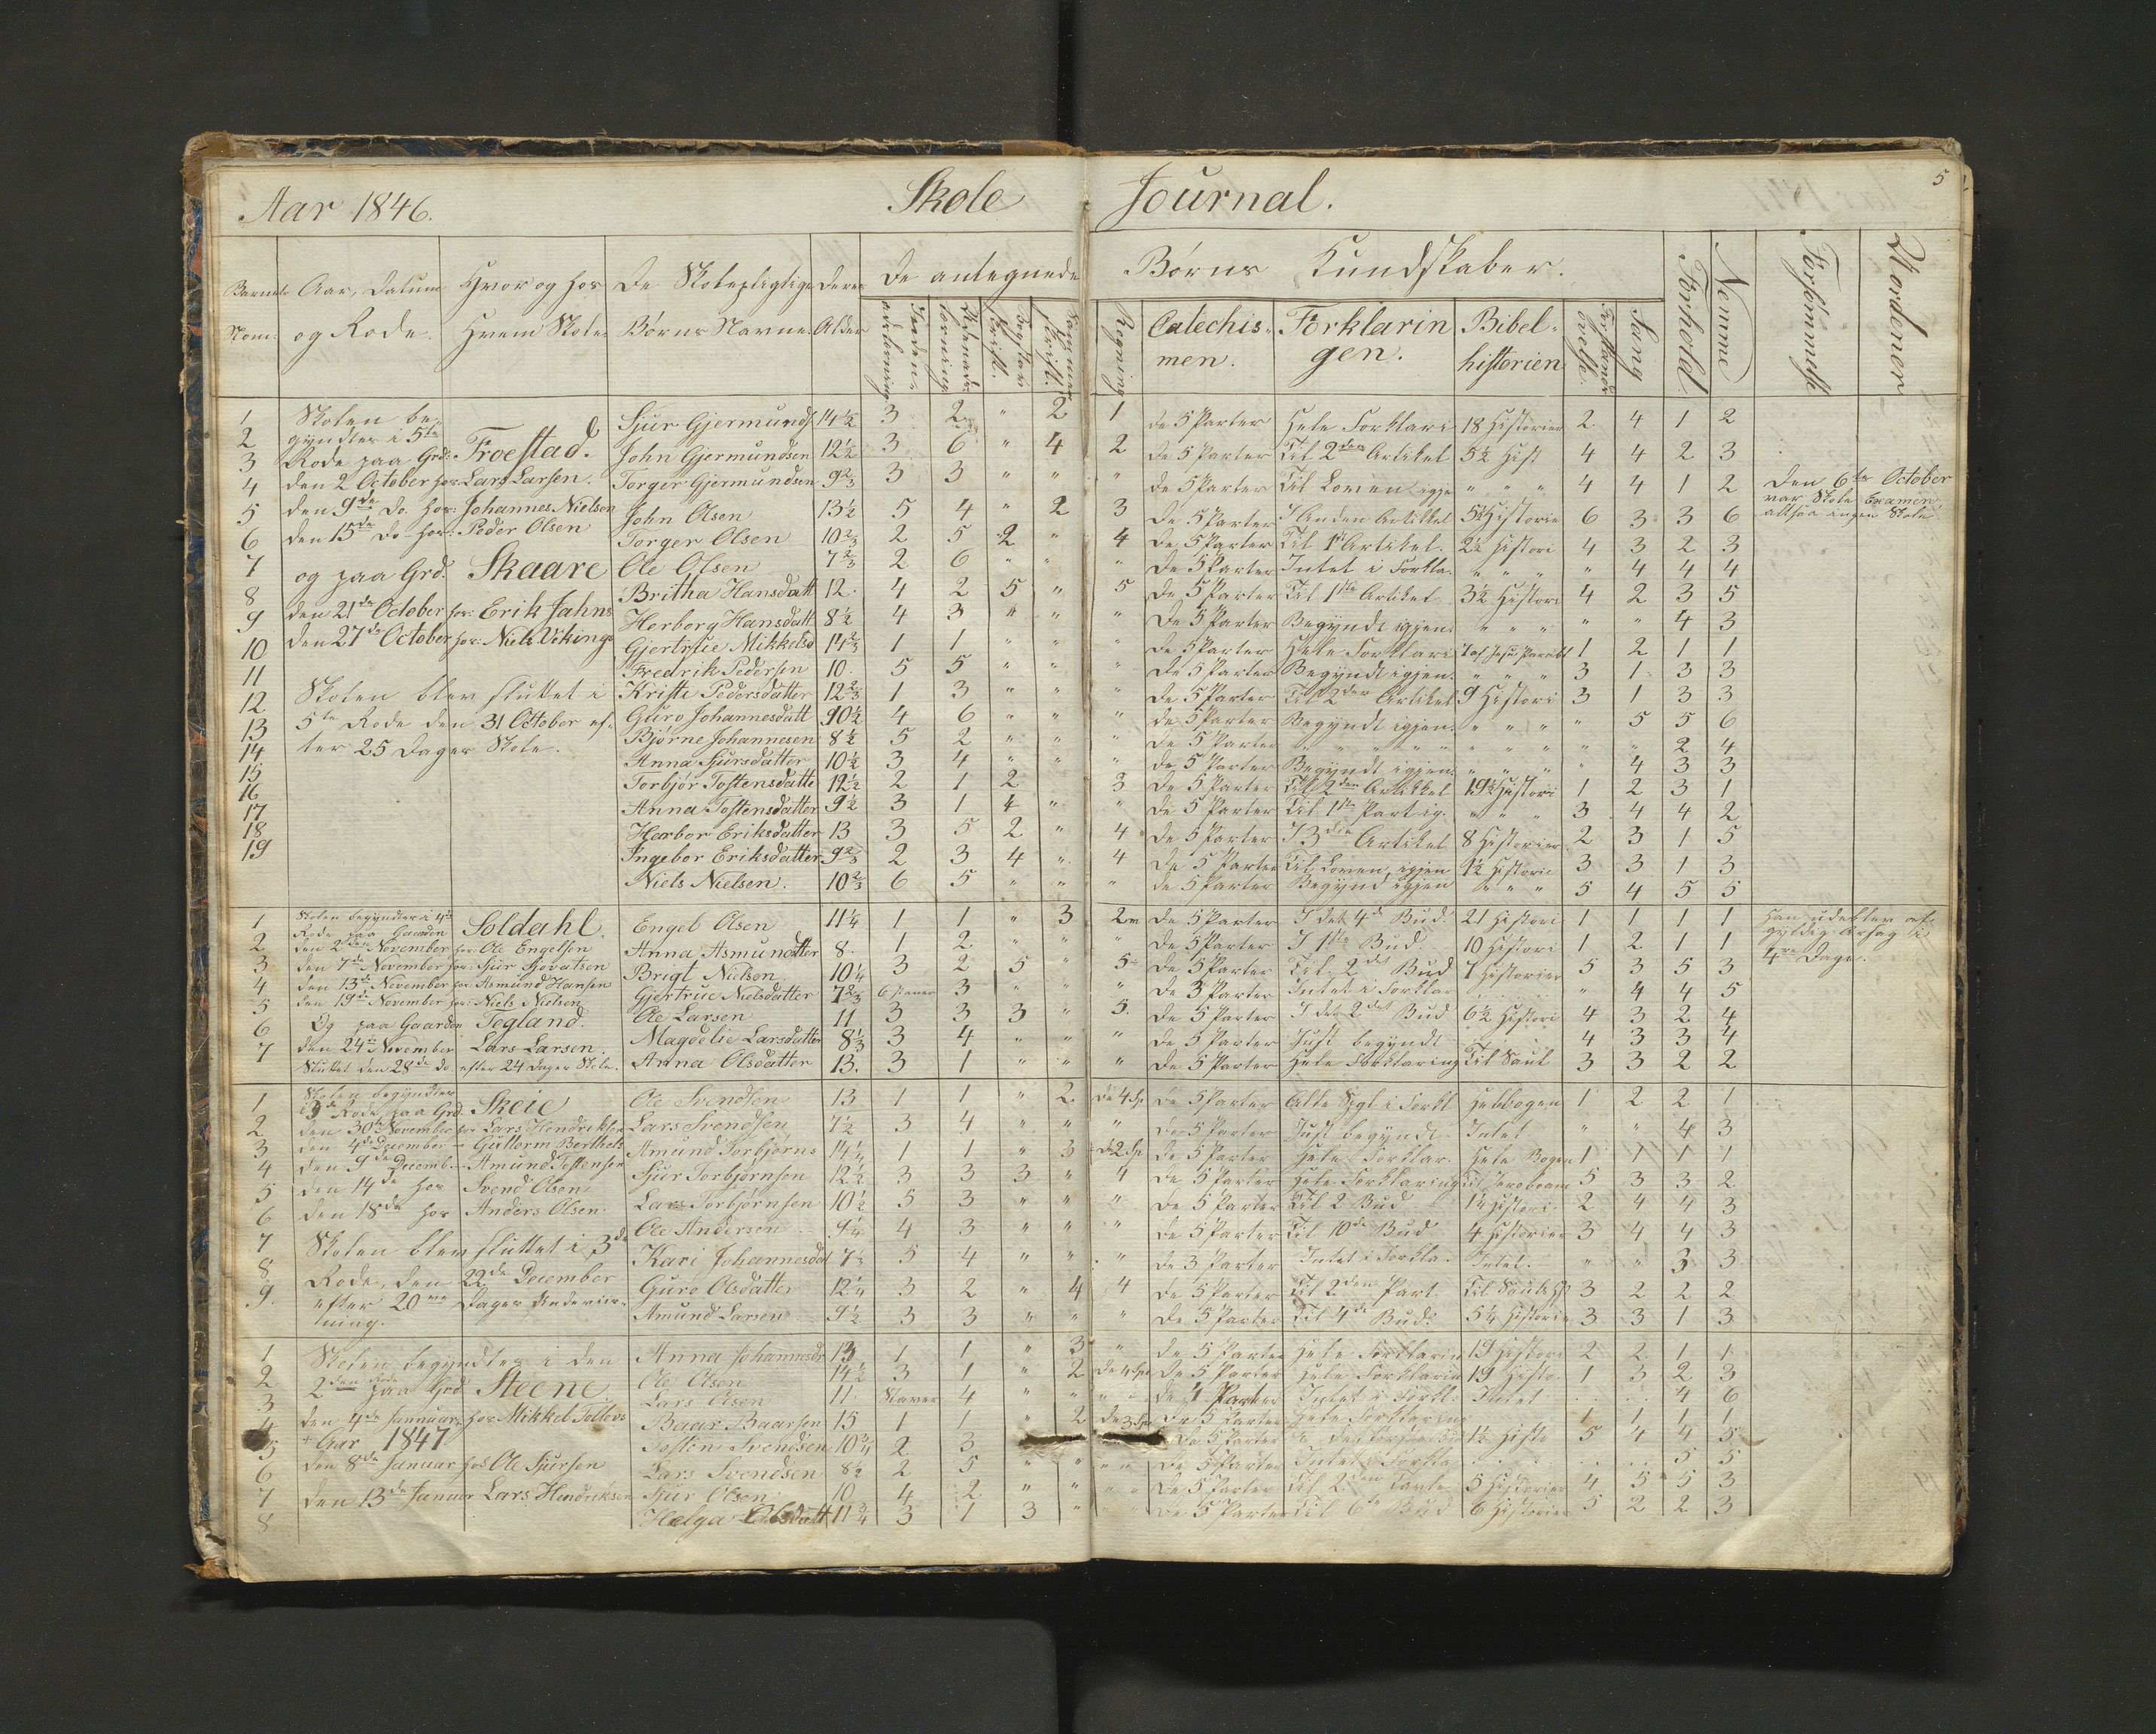 Aar 1846. Skole Journal. 5
Barnets Aar, Datum Hvor og hos De Skolepligtige Deres De antegnede Børns Kundskaber. Forhold Nemme Forsømmelse Uordener
Nom: og Rode. Hvem Skole Børns Navne. Alder Regning Catechis- Forklarin Bibel- Sang
men. gen. historien
1 Skolen be- Sjur Gjermunds 14½ 3 2 " 2 1 de 5 Parter Hele Forklari 18 Historier 2 4 1 2
2 gyndtes i 5te
3 Rode paa Grd: Froestad. John Gjermundsen 12½ 3 6 " 4 2 de 5 Parter Til 2den Artikel 5½ Hist 4 4 2 3
4 den 2 October hos Lars Larsen. Torger Gjermundsen 9⅔ 3 3 " " " de 5 Parter Til Loven igje " " " 4 4 1 2 Den 6te October
5 den 9de Do. hos: Johannes Nielsen John Olsen 13½ 5 4 " 2 3 De 5 Parter I Anden Artikkel 5½ Historie 6 3 3 6 var Skole Examen
altsaa ingen Skole
6 den 15de Do hos: Peder Olsen Torger Olsen 10⅔ 2 5 2 " 4 De 5 Parter Til 1ste Artikel. 2½ Histori 4 3 2 3
7 og paa Grd. Skaare Ole Olsen 7⅔ 2 6 " " " De 5 Parter Intet i Forkla. " " " " 4 4 4
8 Britha Hansdatt 12. 4 2 5 " 5 De 5 Parter Til 1ste Artikel 3½ Histori 4 2 3 5
9 den 21de October hos: Erik Jahns Herborg Hansdatt 8½ 4 3 " " " De 5 Parter Begyndt igjen. " " " " " 4 3
10 den 27de October hos: Niels Vikings Gjertrue Mikkelsd 14⅔ 1 1 " " " de 5 Parter Hele Forklari 1 2 1 1
11 Fredrik Pedersen 10. 5 5 " " " De 5 Parter Begyndt igjen. " " " 3 1 3 3
12 Skolen blev sluttet i Kristi Pedersdatter 12⅔ 1 3 " " " De 5 Parter Til 2den Artikel 9 Histori 3 1 3 3
13 5te Rode den 31 October ef- Guro Johannesdatt 10½ 4 6 " " " de 5 Parter Begyndt igjen. " " " " 5 5 6
14 ter 25 Dager Skole. Bjørne Johannesen 8½ 5 2 " " " De 5 Parter " " " " " " " " " " 2 4
15 Anna Sjursdatter 10½ 3 4 " " " De 5 Parter Begyndt igjen. " " " " 4 3 3
16 Torbjør Tostensdatte 12½ 2 1 2 3 De 5 Parter Til 2den Artikkel 19½ Histori 1 2 3 1
17 Anna Tostensdatter 9½ 3 1 4 " " De 5 Parter Til 1ste Part ig. " " " 3 4 4 2
18 Harbor Eriksdatter 13 3 5 2 " 4 De 5 Parter I 3die Artikel 8 Historier 2 3 1 5
19 Ingebor Eriksdatter 9⅔ 2 3 4 " 4 De 5 Parter Til Loven, igjen 1½ Historie 3 3 1 3
Niels Nielsen. 10⅔ 6 5 " " " de 5 Parter Begynd igjen " " " 5 4 5 5
1 Skolen begyndtes i 4de Soldahl. Engel Olsen 11¼ 1 1 " 3 2 De 5 Parter I det 4de Bud. 21 Histori 1 1 1 1 Han udeblev af
Rode paa Gaarden gyldig Aarsag i
2 den 2den November hos: Ole Engelsen Anna Asmundtter 8. 1 2 " " " De 5 Parter I 1ste Bud 10 Histori 1 2 1 1 4re Dage.
3 den 7de November hos: Sjur Sjovatsen Brigt Nielsen 10¼ 3 2 5 " 5 De 5 Parter Til 2det Bud 7 Historier 5 3 5 3
4 den 13de November hos: Asmund Hansen Gjertrue Nielsdatter 7⅔ 3 " " " De 3 Parter Intet i Forklar " 4 4 5
5 den 19de November hos: Niels Nielsen Ole Larsen 11 3 3 3 " 5. De 5 Parter I det 2det Bud 6½ Histori 4 3 2 4
6 Og paa Gaarden Tegland. Magdelie Larsdatter 8⅓ 3 4 " " " De 5 Parter Just begyndt 4 3 3 4
7 den 24de November Lars Larsen. Anna Olsdatter 13. 3 1 " " " De 5 Parter Hele Forklaring Til Saul 3 3 2 2
Sluttet den 28de do efter 24 Dager Skole.
1 Skolen begyndtes Ole Svendsen 13 1 1 " 2 de 4 Sp. De 5 Parter Alle Spgl i Forkl Helebogen 1 2 2 1
i 3de Rode paa Grd Skeie
2 den 30te November hos Lars Hendriksen Lars Svendsen 7½ 3 4 " " " De 5 Parter Just begyndt Intet " " 4 3
3 den 4de December - Guttorm Berthels Amund Torbjørns 14¼ 1 1 " 3 de 2 Sp. De 5 Parter Hele Forklar. Hele Bogen 1 1 1 1
4 den 9de Decemb. - Amund Tostensen Sjur Torbjørnsen 12½ 3 3 3 " 4 De 5 Parter Hele Forklaring Til Jeroboam 5 3 3 2
5 den 14de hos Svend Olsen Lars Torbjørnsen 10½ 5 3 " " " De 5 Parter Til 2 Bud 1½ Histori. 2 4 4 3
6 den 18de hos Anders Olsen. Ole Andersen 9¼ 4 3 " " " De 5 Parter Til 10de Bud 4 Historier 3 4 4 3
7 Skolen blev sluttet i 3de Kari Johannesdat 7½ 5 4 " " " De 3 Parter Intet i Forkla. Intet. " " 3 3
8 Rode, den 22de December Guro Olsdatter 12¼ 3 2 " 4 4 De 5 Parter Til 2den Part. Til Sauls H 3 2 2 2
9. efter 20ve Dager Underviis- Amund Larsen 9½ 3 3 " " " De 5 Parter Til 4de Bud. 5¼ Histori 3 3 1 3
ning.
1 Skolen begyndtes i den Anna Johannesdr 13 1 1 " 3 " de 5 Parter Hele Forklarin 19 Histori 2 2 1 1
2 2den Rode paa Grd Steene. Ole Olsen 14½ 3 1 " 2 de 4 Spe De 5 Parter Hele Forklarin 19 Histo. 1 3 2 3
3 Lars Olsen 11. Staver 4 " " " de 1 Parter Intet i Forkl. Intet 4 6
4 den 4de Januar hos Mikkel Tollevs Baar Baarsen 15 1 1 " 2 de 3 Spe De 5 Parter Hele Forklaring 1 1 1 1
5 + Aar 1847 Tosten Svendsen 10¾ 2 3 De 5 Parter 1½ Histo 5 4 4 5
6 den 8de Januar hos Ole Sjursen Lars Svendsen 8½ 2 5 " " " De 5 Parter Intet i Forkla 5 5
7 den 13de Januar Lars Hendriksen Sjur Olsen 10 4 2 " " " De 5 Parter Til 2den Parte 5 Historier 4 5 5 3
8 Helga Olsdatt 11¾ 3 1 3 " " De 5 Parter Til 6te Bud 6 Historier 5 2 2 3